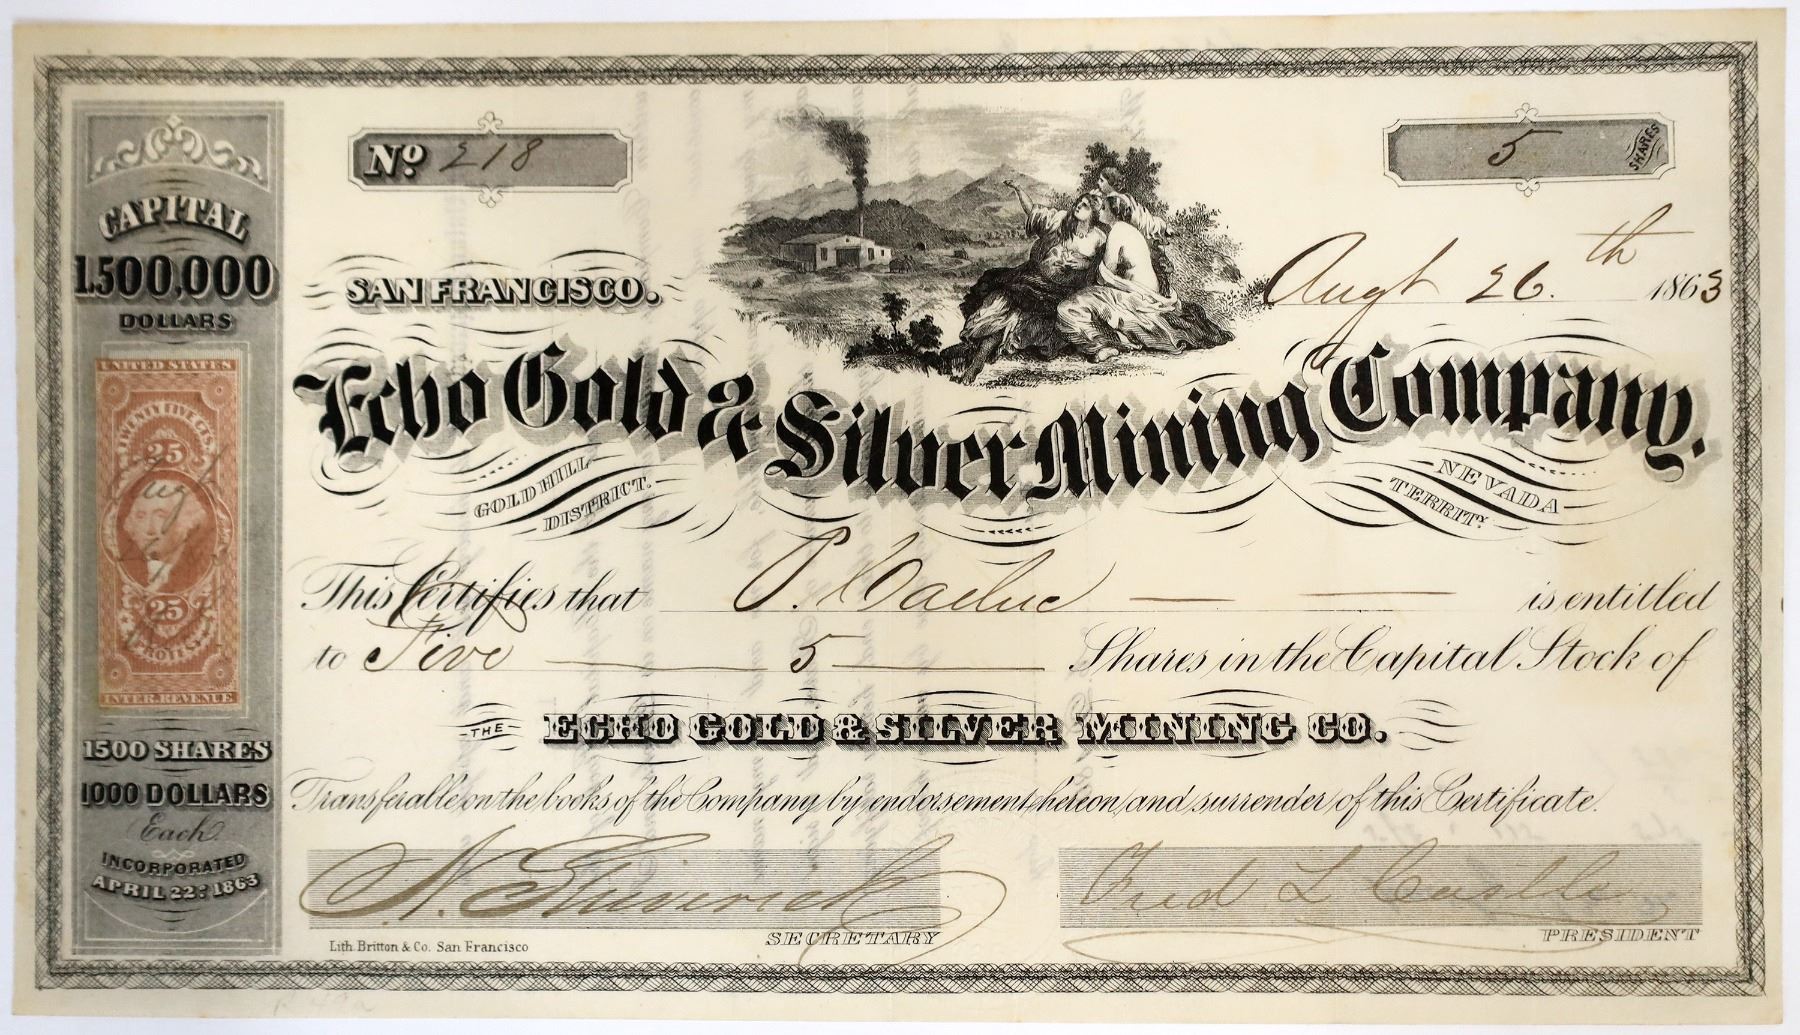 CAPITAL
1.500,000
DOLLARS
UNITED STATES
TWENTY FIVE CTS
25
Augt
25
PROTEST
INTER. REVENUE
1500 SHARES
1000 DOLLARS
Each
INCORPORATED
APRIL 22D 1863
No 218
5 SHARES
SAN FRANCISCO.
Augt 26th 1863
Echo Gold & Silver Mining Company.
GOLD HILL DISTRICT.
NEVADA TERRITY
This Certifies that P. is entitled
to Five 5 Shares in the Capital Stock of
THE ECHO GOLD & SILVER MINING CO.
Transferable on the books of the Company by endorsement hereon and surrender of this Certificate.
Fred L Castle
SECRETARY
PRESIDENT
Lith. Britton & Co. San Francisco